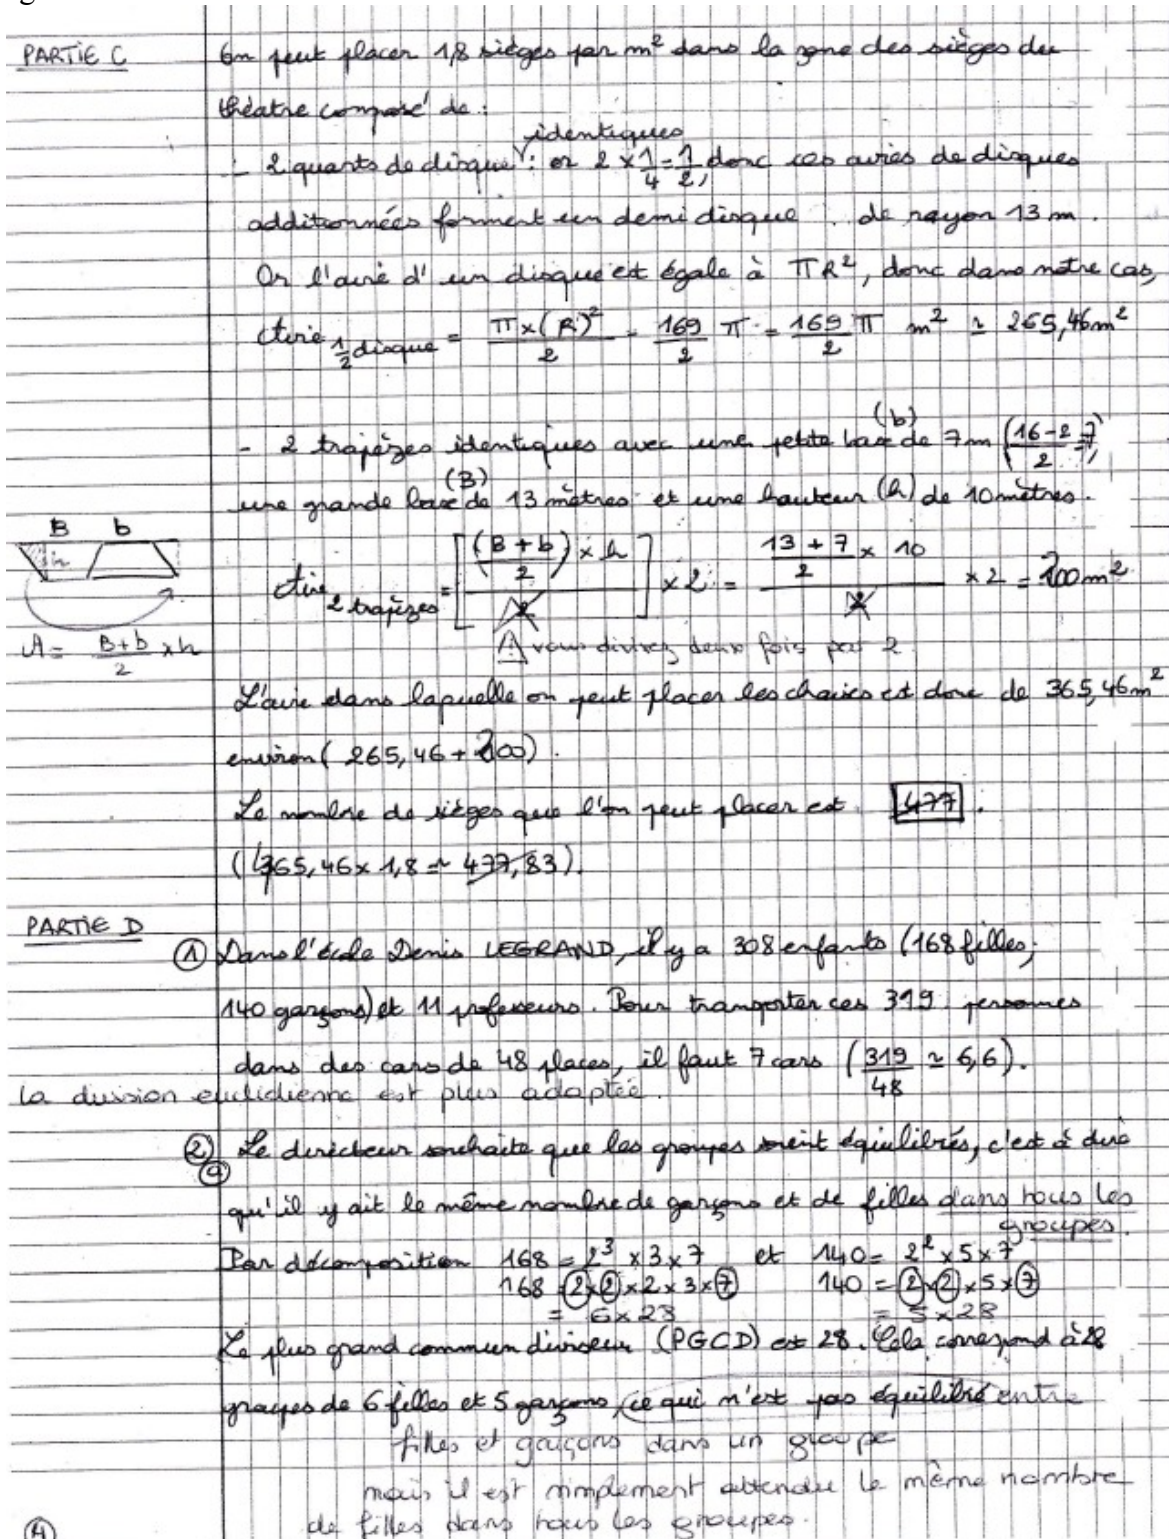 PARTIE C
On peut placer 1,8 sièges par m² dans la zone des sièges du
théatre composé de :
identiques
- 2 quarts de disque : or 2 × 1/4 = 1/2, donc ces aires de disques
additionnées forment un demi disque de rayon 13 m.
Or l'aire d'un disque est égale à πR², donc dans notre cas,
Aire 1/2 disque = π×(R)²/2 = 169/2 π = 169/2 π m² ≃ 265,46m²
(b)
- 2 trapèzes identiques avec une petite base de 7m (16-2/2 = 7)
(B)
une grande base de 13 mètres et une hauteur (h) de 10 mètres.
B b
h
Aire 2 trapèzes = [(B+b)/2 × h / 2] × 2 = 13+7/2 × 10 / 2 × 2 = 200m²
A = B+b/2 × h
⚠ vous divisez deux fois par 2
L'aire dans laquelle on peut placer les chaises est donc de 365,46m²
environ (265,46 + 200).
Le nombre de sièges que l'on peut placer est 477.
(465,46 × 1,8 ≃ 477,83).
PARTIE D
① Dans l'école Denis LEGRAND, il y a 308 enfants (168 filles;
140 garçons) et 11 professeurs. Pour transporter ces 319 personnes
dans des cars de 48 places, il faut 7 cars (319/48 ≃ 6,6).
la division euclidienne est plus adaptée.
② Le directeur souhaite que les groupes soient équilibrés, c'est à dire
a
qu'il y ait le même nombre de garçons et de filles dans tous les
groupes.
Par décomposition 168 = 2³ × 3 × 7 et 140 = 2² × 5 × 7
168 = 2×2×2×3×7 140 = 2×2×5×7
= 6×28 = 5×28
Le plus grand commun diviseur (PGCD) est 28. Cela correspond à 28
groupes de 6 filles et 5 garçons, ce qui n'est pas équilibré entre
filles et garçons dans un groupe
mais il est simplement attendu le même nombre
de filles dans tous les groupes.
④